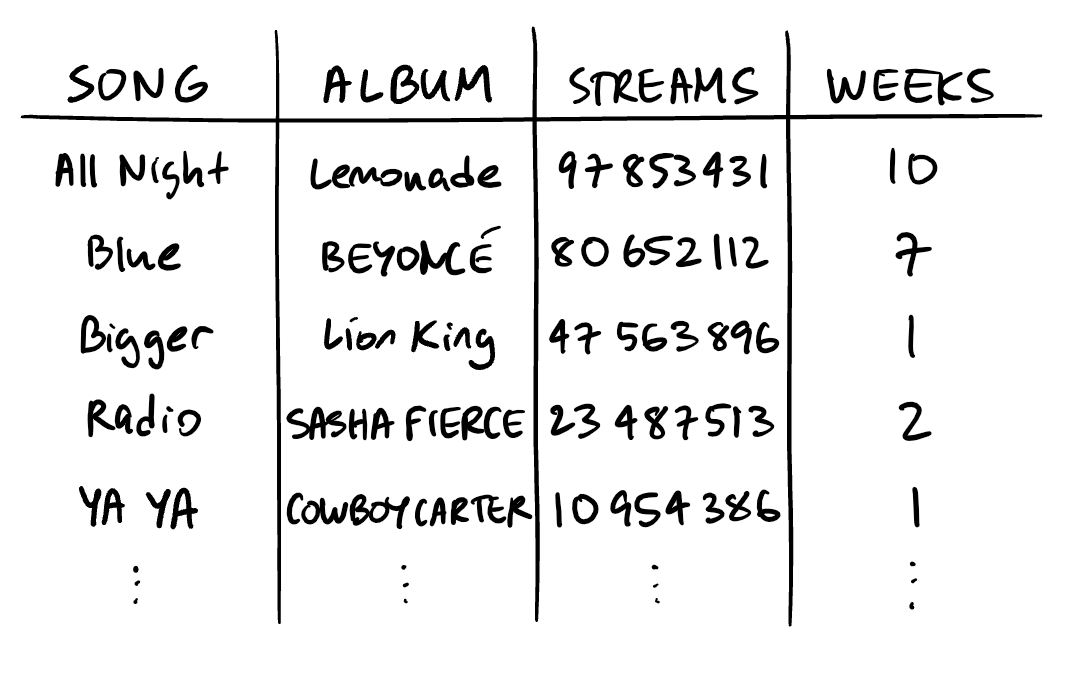 SONG ALBUM STREAMS WEEKS
All Night Lemonade 97853431 10
Blue BEYONCÉ 80652112 7
Bigger Lion King 47563896 1
Radio SASHA FIERCE 23487513 2
YA YA COWBOY CARTER 10954386 1
⋮ ⋮ ⋮ ⋮